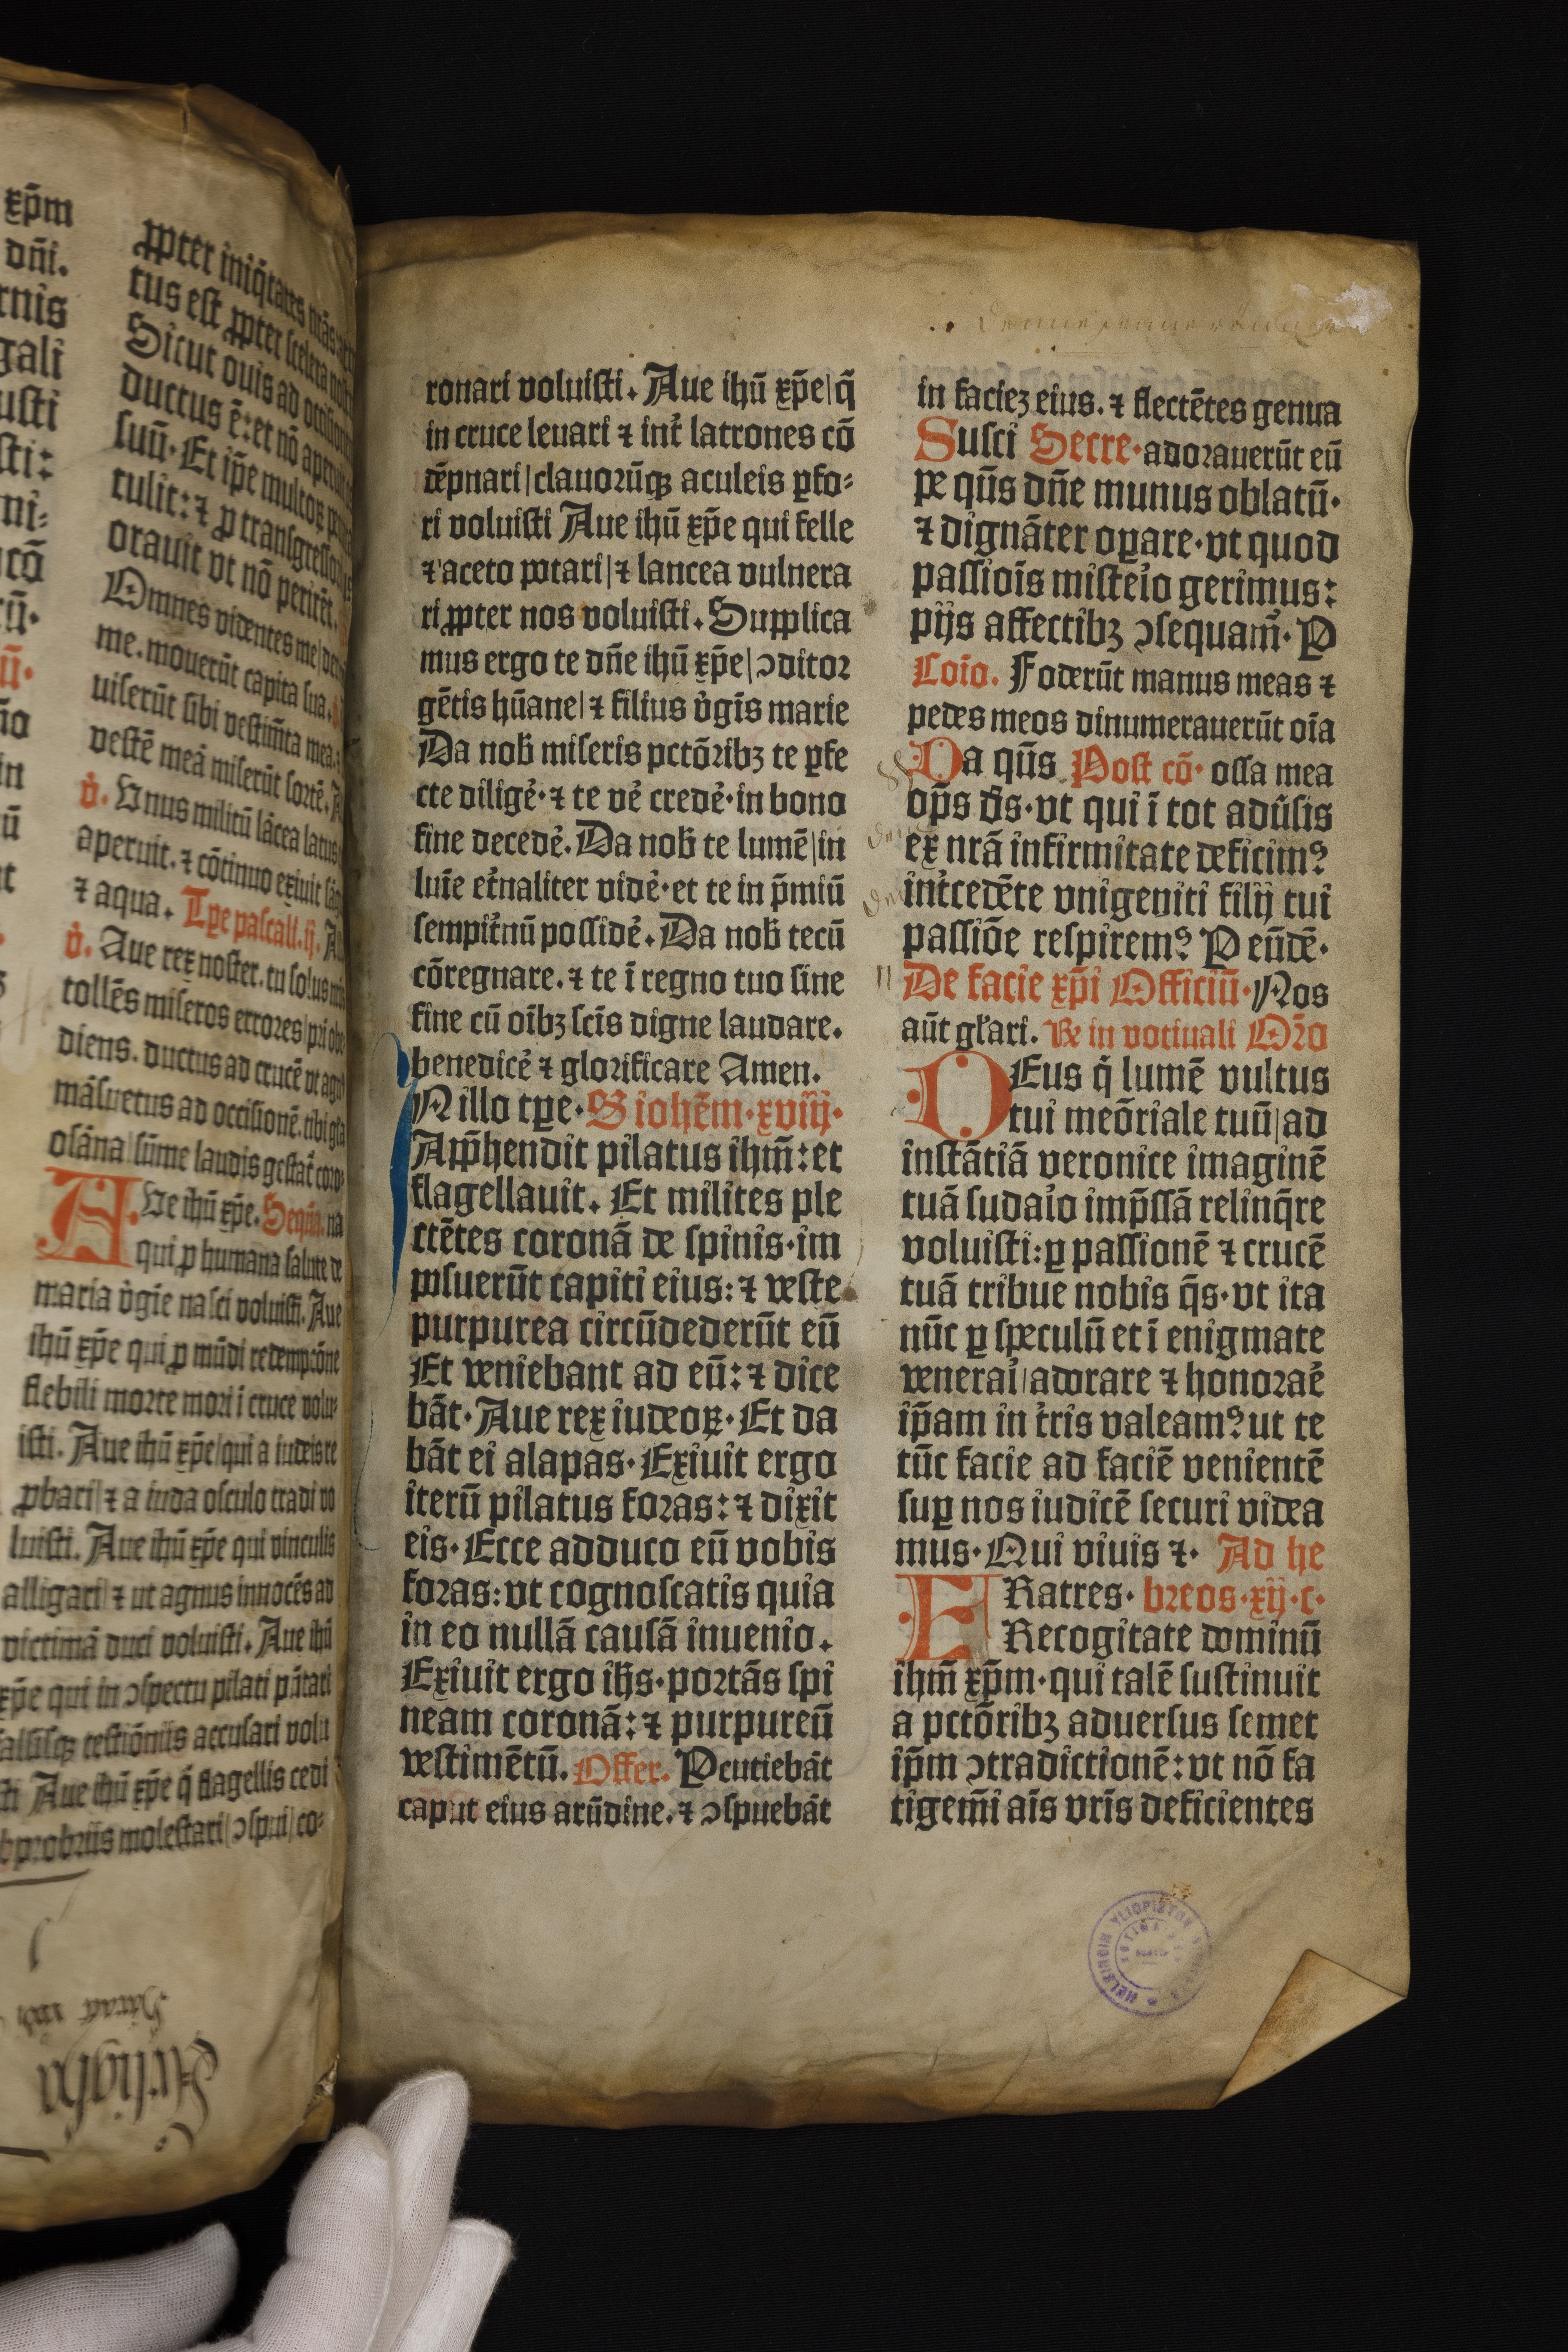 xp̄m
dn̄i.
rnis
gali
usti
sti:
ni⸗
cō
ū.
in
ū
ꝓpter iniq̄tates nr̄as
tus est ꝓpter scelera
Sicut ouis ad
ductus ē: et nō
suū. Et ip̄e multoꝝ
tulit: ⁊ ꝓ transgressoribus
orauit vt nō perirēt.
Omnes videntes me
me. mouerūt capita sua.
uiserūt sibi vestimn̄ta mea.
vestē meā miserūt sortē.
v̓. Vnus militū lācea latus
aperuit. ⁊ cōtinuo exiuit
⁊ aqua. Tꝑe pascali. ij.
v̓. Aue rex noster. tu solus
tollēs miseros errores| pri obe
diens. ductus ad crucē vt agn
māsuetus ad occisionē. tibi gl̄a
osāna| sūme laudis
AVe ihū xp̄e. Sequn̄. na
qui ꝓ humana salute de
maria v̓gīe nasci voluisti. Aue
ihū xp̄e qui ꝓ mūdi redempcōne
flebili morte mori ī cruce volu⸗
isti. Aue ihū xp̄e| qui a iudeis re
ꝓbari| ⁊ a iuda osculo tradi vo
luisti. Aue ihū xp̄e qui vinculis
alligari| ⁊ ut agnus innocēs ad
victimā duci voluisti. Aue ihū
xp̄e qui in ↄspectu pilati p̄ntari
falsisqꝫ testiōniis accusari volu
sti Aue ihū xp̄e q̄ flagellis cedi
obprobriis molestari| ↄspui| co⸗
ronari voluisti. Aue ihū xp̄e| q̄
in cruce leuari ⁊ int̓ latrones cō
dēpnari| clauorūqꝫ aculeis ꝑfo⸗
ri voluisti Aue ihū xp̄e qui felle
⁊ aceto potari| ⁊ lancea vulnera
ri ꝓpter nos voluisti. Supplica
mus ergo te dn̄e ihū xp̄e| ↄditor
gētis hūane| ⁊ filius v̓gīs marie
Da nob̄ miseris pctōribꝫ te ꝑfe
cte diligē̓. ⁊ te vē̓ credē̓. in bono
fine decedē̓. Da nob̄ te lumē| in
luīe et̓naliter vidē̓. et te in p̄miū
sempit̓nū possidē̓. Da nob̄ tecū
cōregnare. ⁊ te ī regno tuo sine
fine cū oībꝫ sc̄is digne laudare.
benedicē̓ ⁊ glorificare Amen.
N illo tꝑe. S iohēm. xviij.
App̄hendit pilatus ihm̄: et
flagellauit. Et milites ple
ctētes coronā de spinis. im
posuerūt capiti eius: ⁊ veste
purpurea circūdederūt eū
Et veniebant ad eū: ⁊ dice
bāt. Aue rex iudeoꝝ. Et da
bāt ei alapas. Exiuit ergo
iterū pilatus foras: ⁊ dixit
eis. Ecce adduco eū vobis
foras: vt cognoscatis quia
in eo nullā causā inuenio.
Exiuit ergo ihs̄. portās spi
neam coronā: ⁊ purpureū
vestimētū. Offer. Ꝑcutiebāt
caput eius arūdine. ⁊ ↄspuebāt
in faciez eius. ⁊ flectētes genua
Susci Secre. adorauerūt eū
pe qūs dn̄e munus oblatū.
⁊ dignāter oꝑare. vt quod
passioīs misteīo gerimus:
pijs affectibꝫ ↄsequam̄. P
Coīo. Foderūt manus meas ⁊
pedes meos dinumerauerūt oīa
Da qūs Post cō. ossa mea
op̄s ds̄. vt qui ī tot adūsis
ex nrā infirmitate deficimꝰ
int̓cedēte vnigeniti filij tui
passiōe respiremꝰ P eūdē.
De facie xp̄i Officiū. Nos
aūt gl̄ari. Re in votiuali Or̄o
DEus q̓ lumē vultus
tui meōriale tuū| ad
instātiā veronice imaginē
tuā sudaīo imp̄ssā relinq̄re
voluisti: ꝑ passionē ⁊ crucē
tuā tribue nobis q̄s. vt ita
nūc ꝑ speculū et ī enigmate
veneraī| adorare ⁊ honoraē̓
ip̄am in t̓ris valeamꝰ ut te
tūc facie ad faciē venientē
suꝑ nos iudicē securi videa
mus. Qui viuis ⁊. Ad he
FRatres. breos. xij. c.
Recogitate dominū
ihm̄ xp̄m. qui talē sustinuit
a pctōribꝫ aduersus semet
ip̄m ↄtradictionē: vt nō fa
tigem̄i aīs vr̄is deficientes
HELSINGIN YLIOPISTON